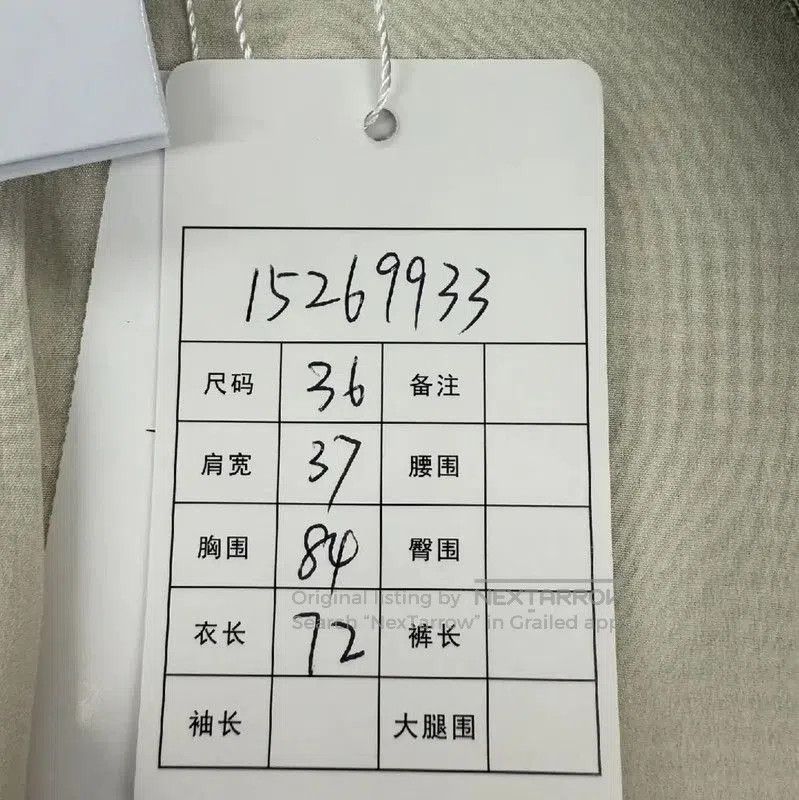 15269933
尺码 36 备注
肩宽 37 腰围
胸围 84 臀围
Original listing by NEXTARROW
衣长 72 裤长
Search "NexTarrow" in Grailed app
袖长 大腿围